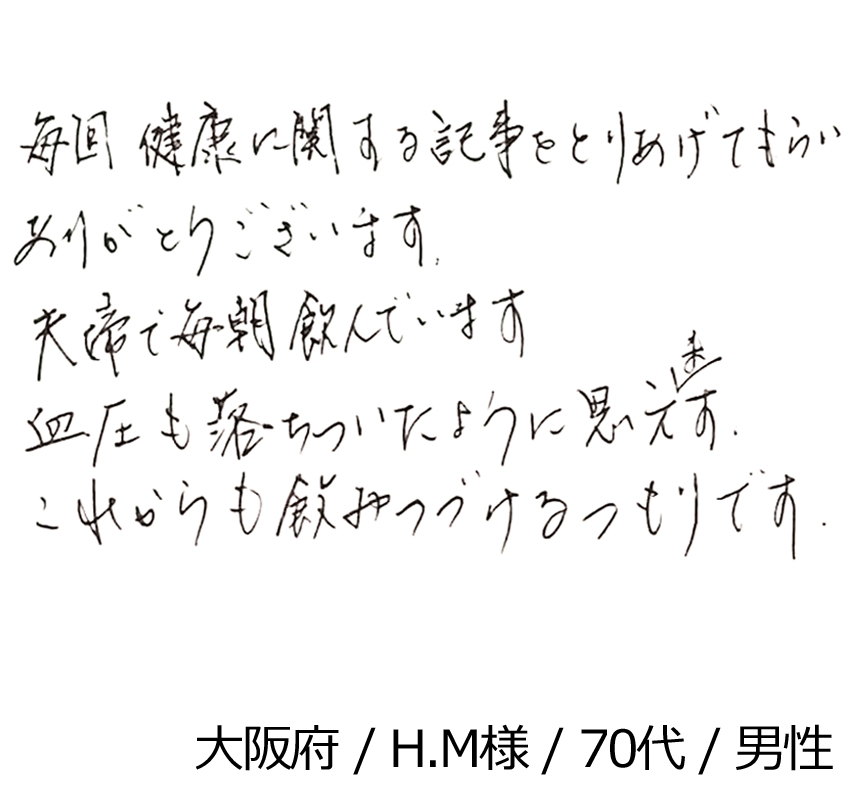 毎回健康に関する記事をとりあげてもらい
ありがとうございます。
夫婦で毎朝飲んでいます
血圧も落ちついたように思えます。
これからも飲みつづけるつもりです.
大阪府 / H.M様 / 70代 / 男性